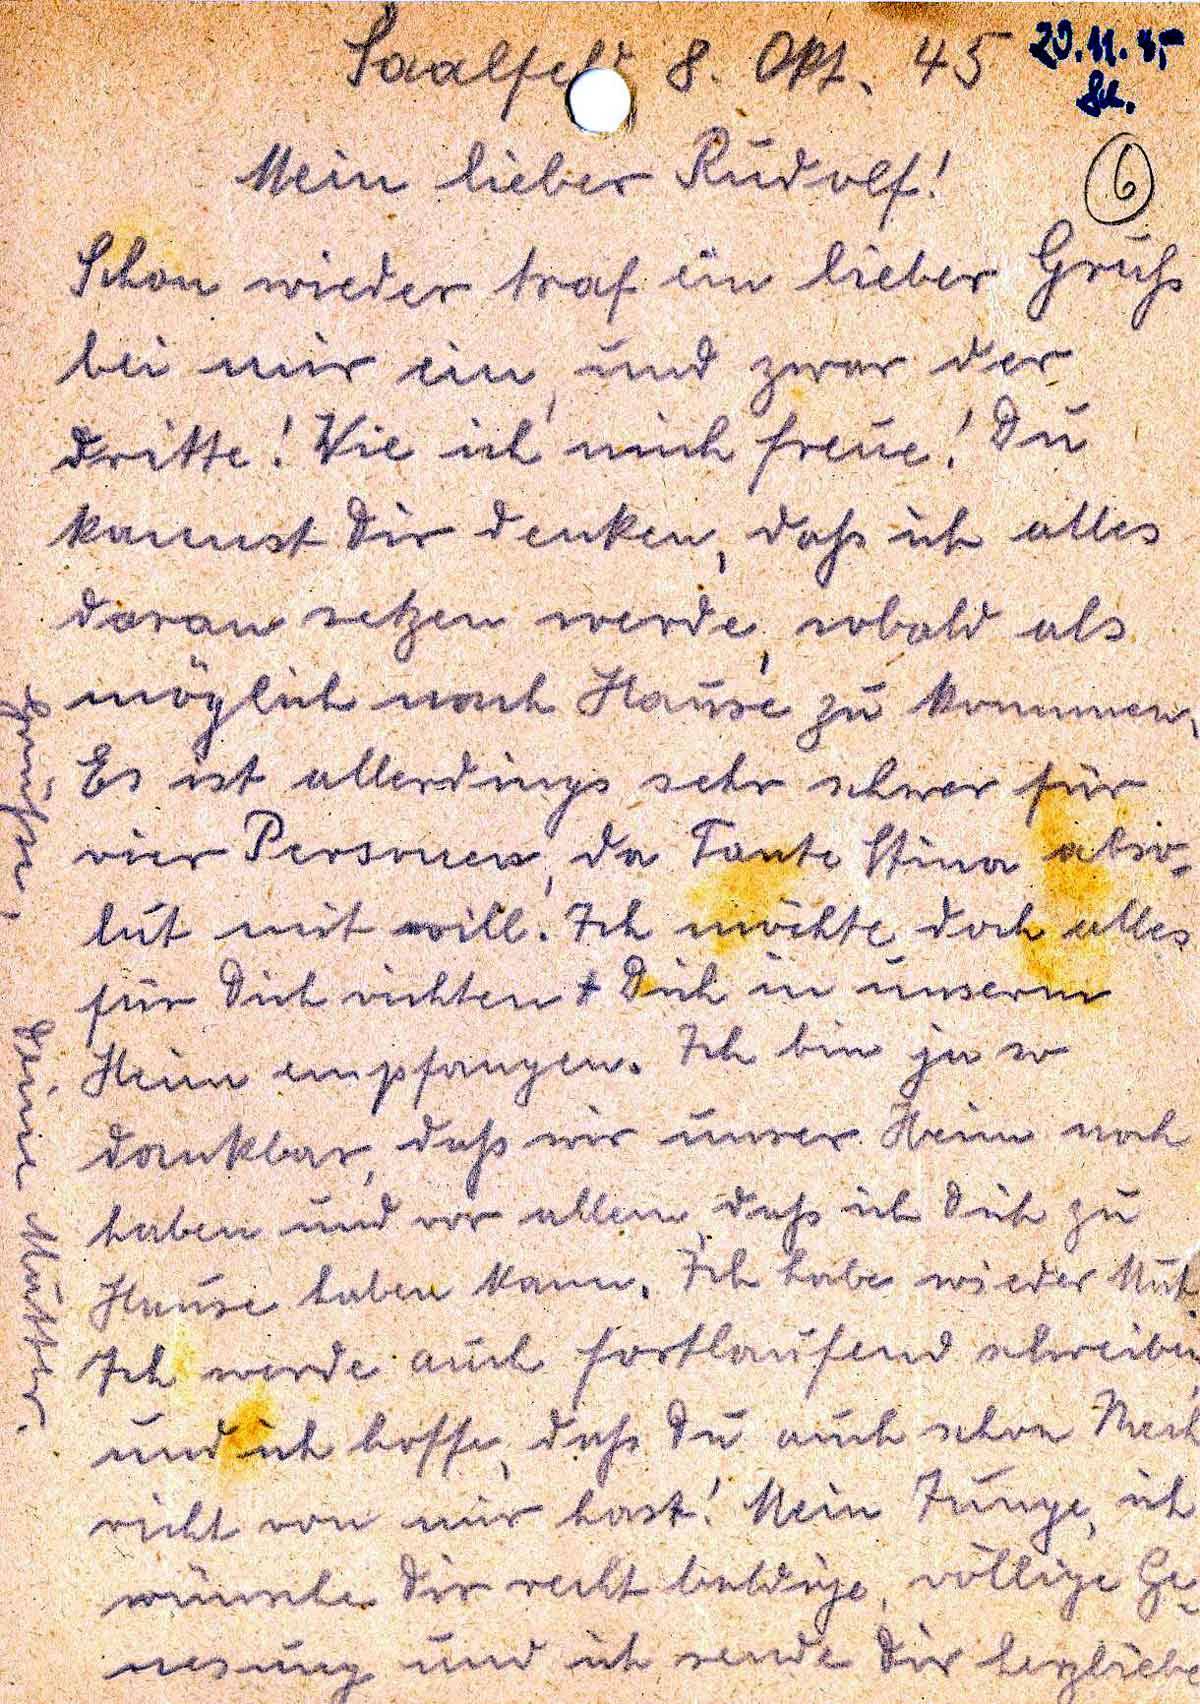 Saalfeld 8. Okt. 45
20.11.45
Sch.
6
Mein lieber Rudolf!
Schon wieder traf ein lieber Gruß
bei mir ein, und zwar der
dritte! Wie ich mich freue! Du
kannst Dir denken, daß ich alles
daran setzen werde, sobald als
möglich nach Hause zu kommen.
Es ist allerdings sehr schwer für
vier Personen, da Tante Stina abso-
lut mit will. Ich möchte doch alles
für Dich richten + Dich in unserm
Heim empfangen. Ich bin ja so
dankbar, daß wir unser Heim noch
haben und vor allem, daß ich Dich zu
Hause haben kann. Ich habe wieder Mut.
Ich werde auch fortlaufend schreiben,
und ich hoffe, daß Du auch schon Nach
richt von mir hast! Mein Junge, ich
wünsche Dir recht baldige, völlige Ge-
nesung und ich sende Dir herzliebe
Grüße!
Deine Mutter.